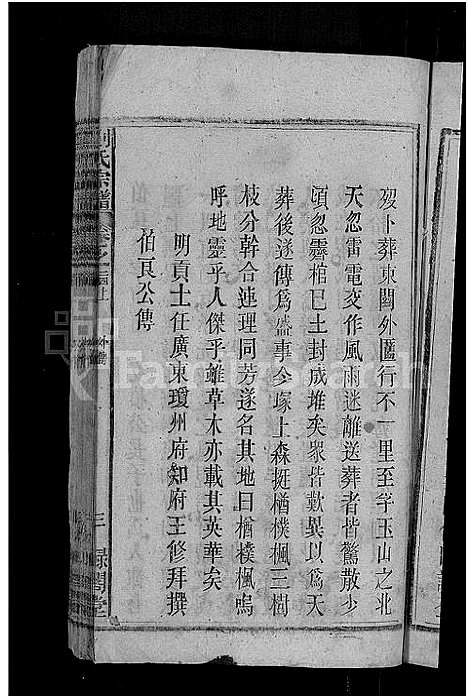 歿卜葬東關外匶行不一里至孛玉山之北
天忽雷電交作風雨迷離送葬者皆驚散少
頃忽霽棺已土封成堆矣衆皆歎異以爲天
葬後遂傳爲盛事今塚上森挺楢樸楓三樹
枝分幹合連理同芳遂名其地曰楢樸楓嗚
呼地靈乎人傑乎雖草木亦載其英華矣
明貢士任廣東瓊州府知府王修拜撰
伯良公傳
劉氏宗譜
三 祿閣堂